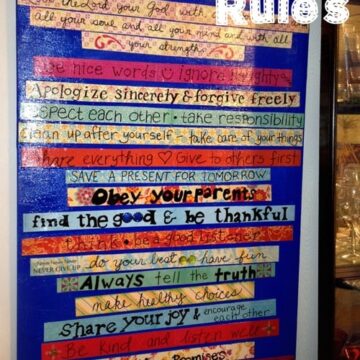 Rules
the Lord your God with
all your soul and all your mind and with all
your strength.
use nice words ♡ Ignore naughty
Apologize sincerely & forgive freely
respect each other • take responsibility
clean up after yourself - take care of your things
share everything ♡ Give to others first
SAVE A PRESENT FOR TOMORROW
Obey your parents
find the good & be thankful
think • be a good listener
NEVER GIVE UP do your best have fun
Always tell the truth
make healthy choices
Share your joy & encourage each other
Be kind and listen well
Promises